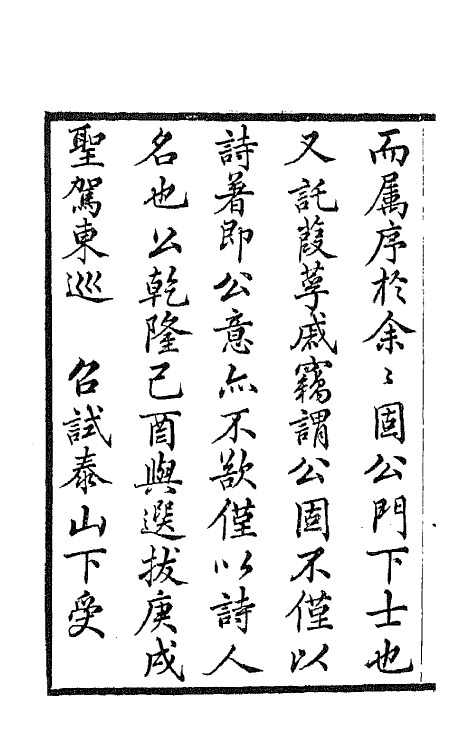 而属序於余〻固公門下士也
又託葭莩戚竊謂公固不僅以
詩著即公意亦不欲僅以詩人
名也公乾隆己酉與選拔庚戌
聖駕東巡　召試泰山下受